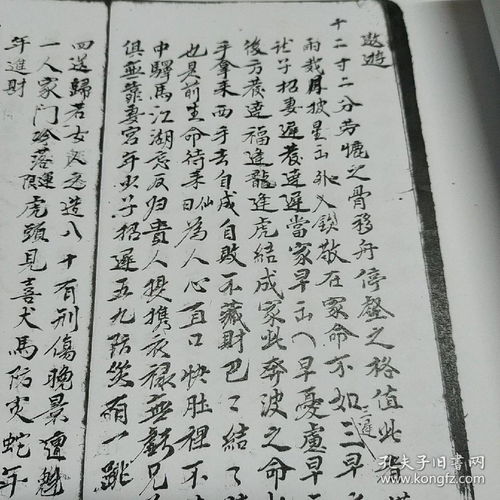 遨遊
十二寸二分劳碌之骨移舟停整之格值此
雨栽月披星出外入鎖敬在家命不如三早
三進
社子招妻遲發達遲當家早出八早憂慮早
後方發達福逢龍逢虎結成家此奔波之命
手拿来西手去自成自敗不藏財巴巴結了
也是前生命待来仙為人心直口快肚裡不
日
中驛馬江湖意反归貴人提携衣禄無虧兄
俱無靠妻宮年少子招遲五九防災有一跳
四送歸若女又造八十有刑傷晚景遭
一人家門冷落運虎頭見喜犬馬防炎蛇年
限
年進財
孔夫子旧书网
www.kongfz.com